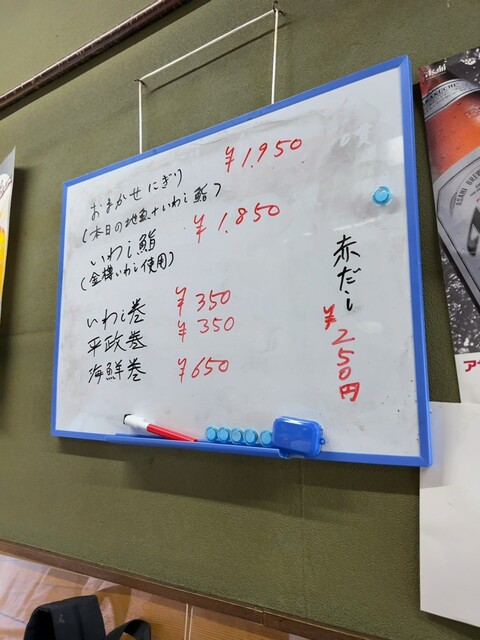 おまかせにぎり ¥1.950
(本日の地魚+いわし鮨)
いわし鮨 ¥1.850
(金樽いわし使用)
いわし巻 ¥350
平政巻 ¥350
海鮮巻 ¥650
赤だし ¥250円
Asahi
ASAHI BREW